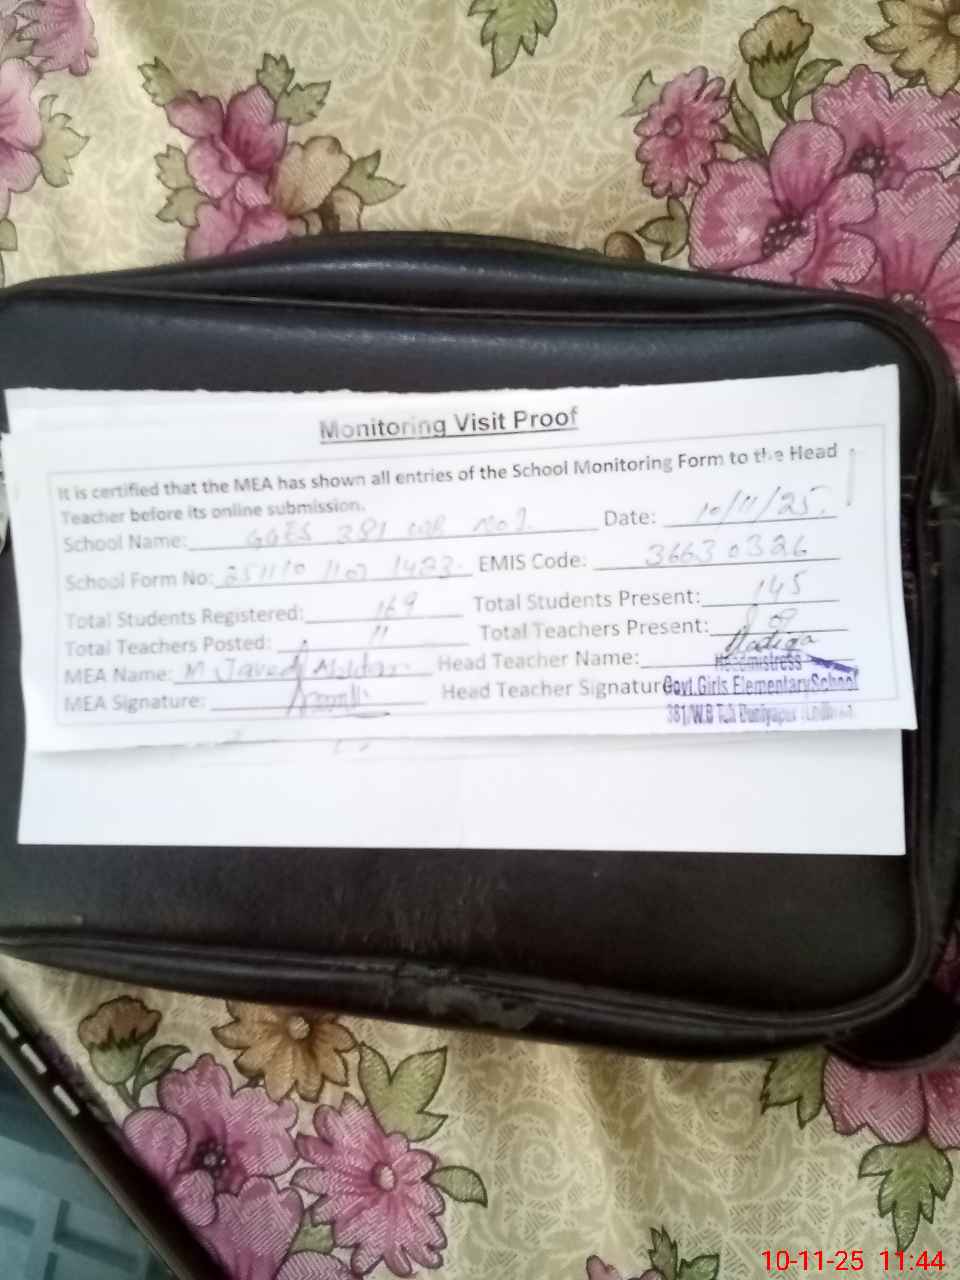 Monitoring Visit Proof
It is certified that the MEA has shown all entries of the School Monitoring Form to the Head
Teacher before its online submission.
School Name: GGES 381 WB No 1 Date: 10/11/25.
School Form No: EMIS Code: 36630326
Total Students Registered: 169 Total Students Present: 145
Total Teachers Posted: 11 Total Teachers Present: 09
MEA Name: M Javed Head Teacher Name:
MEA Signature: Head Teacher Signature
Headmistress
Govt.Girls Elementary School
381/W.B Teh Dunyapur
10-11-25 11:44